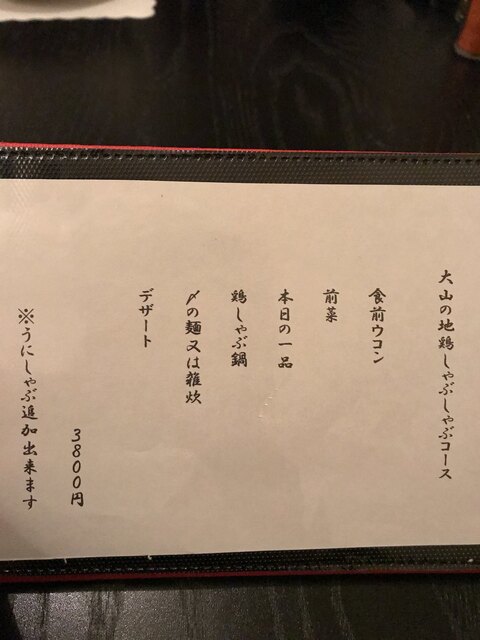 大山の地鶏しゃぶしゃぶコース
食前ウコン
前菜
本日の一品
鶏しゃぶ鍋
〆の麺又は雑炊
デザート
3800円
※うにしゃぶ追加出来ます